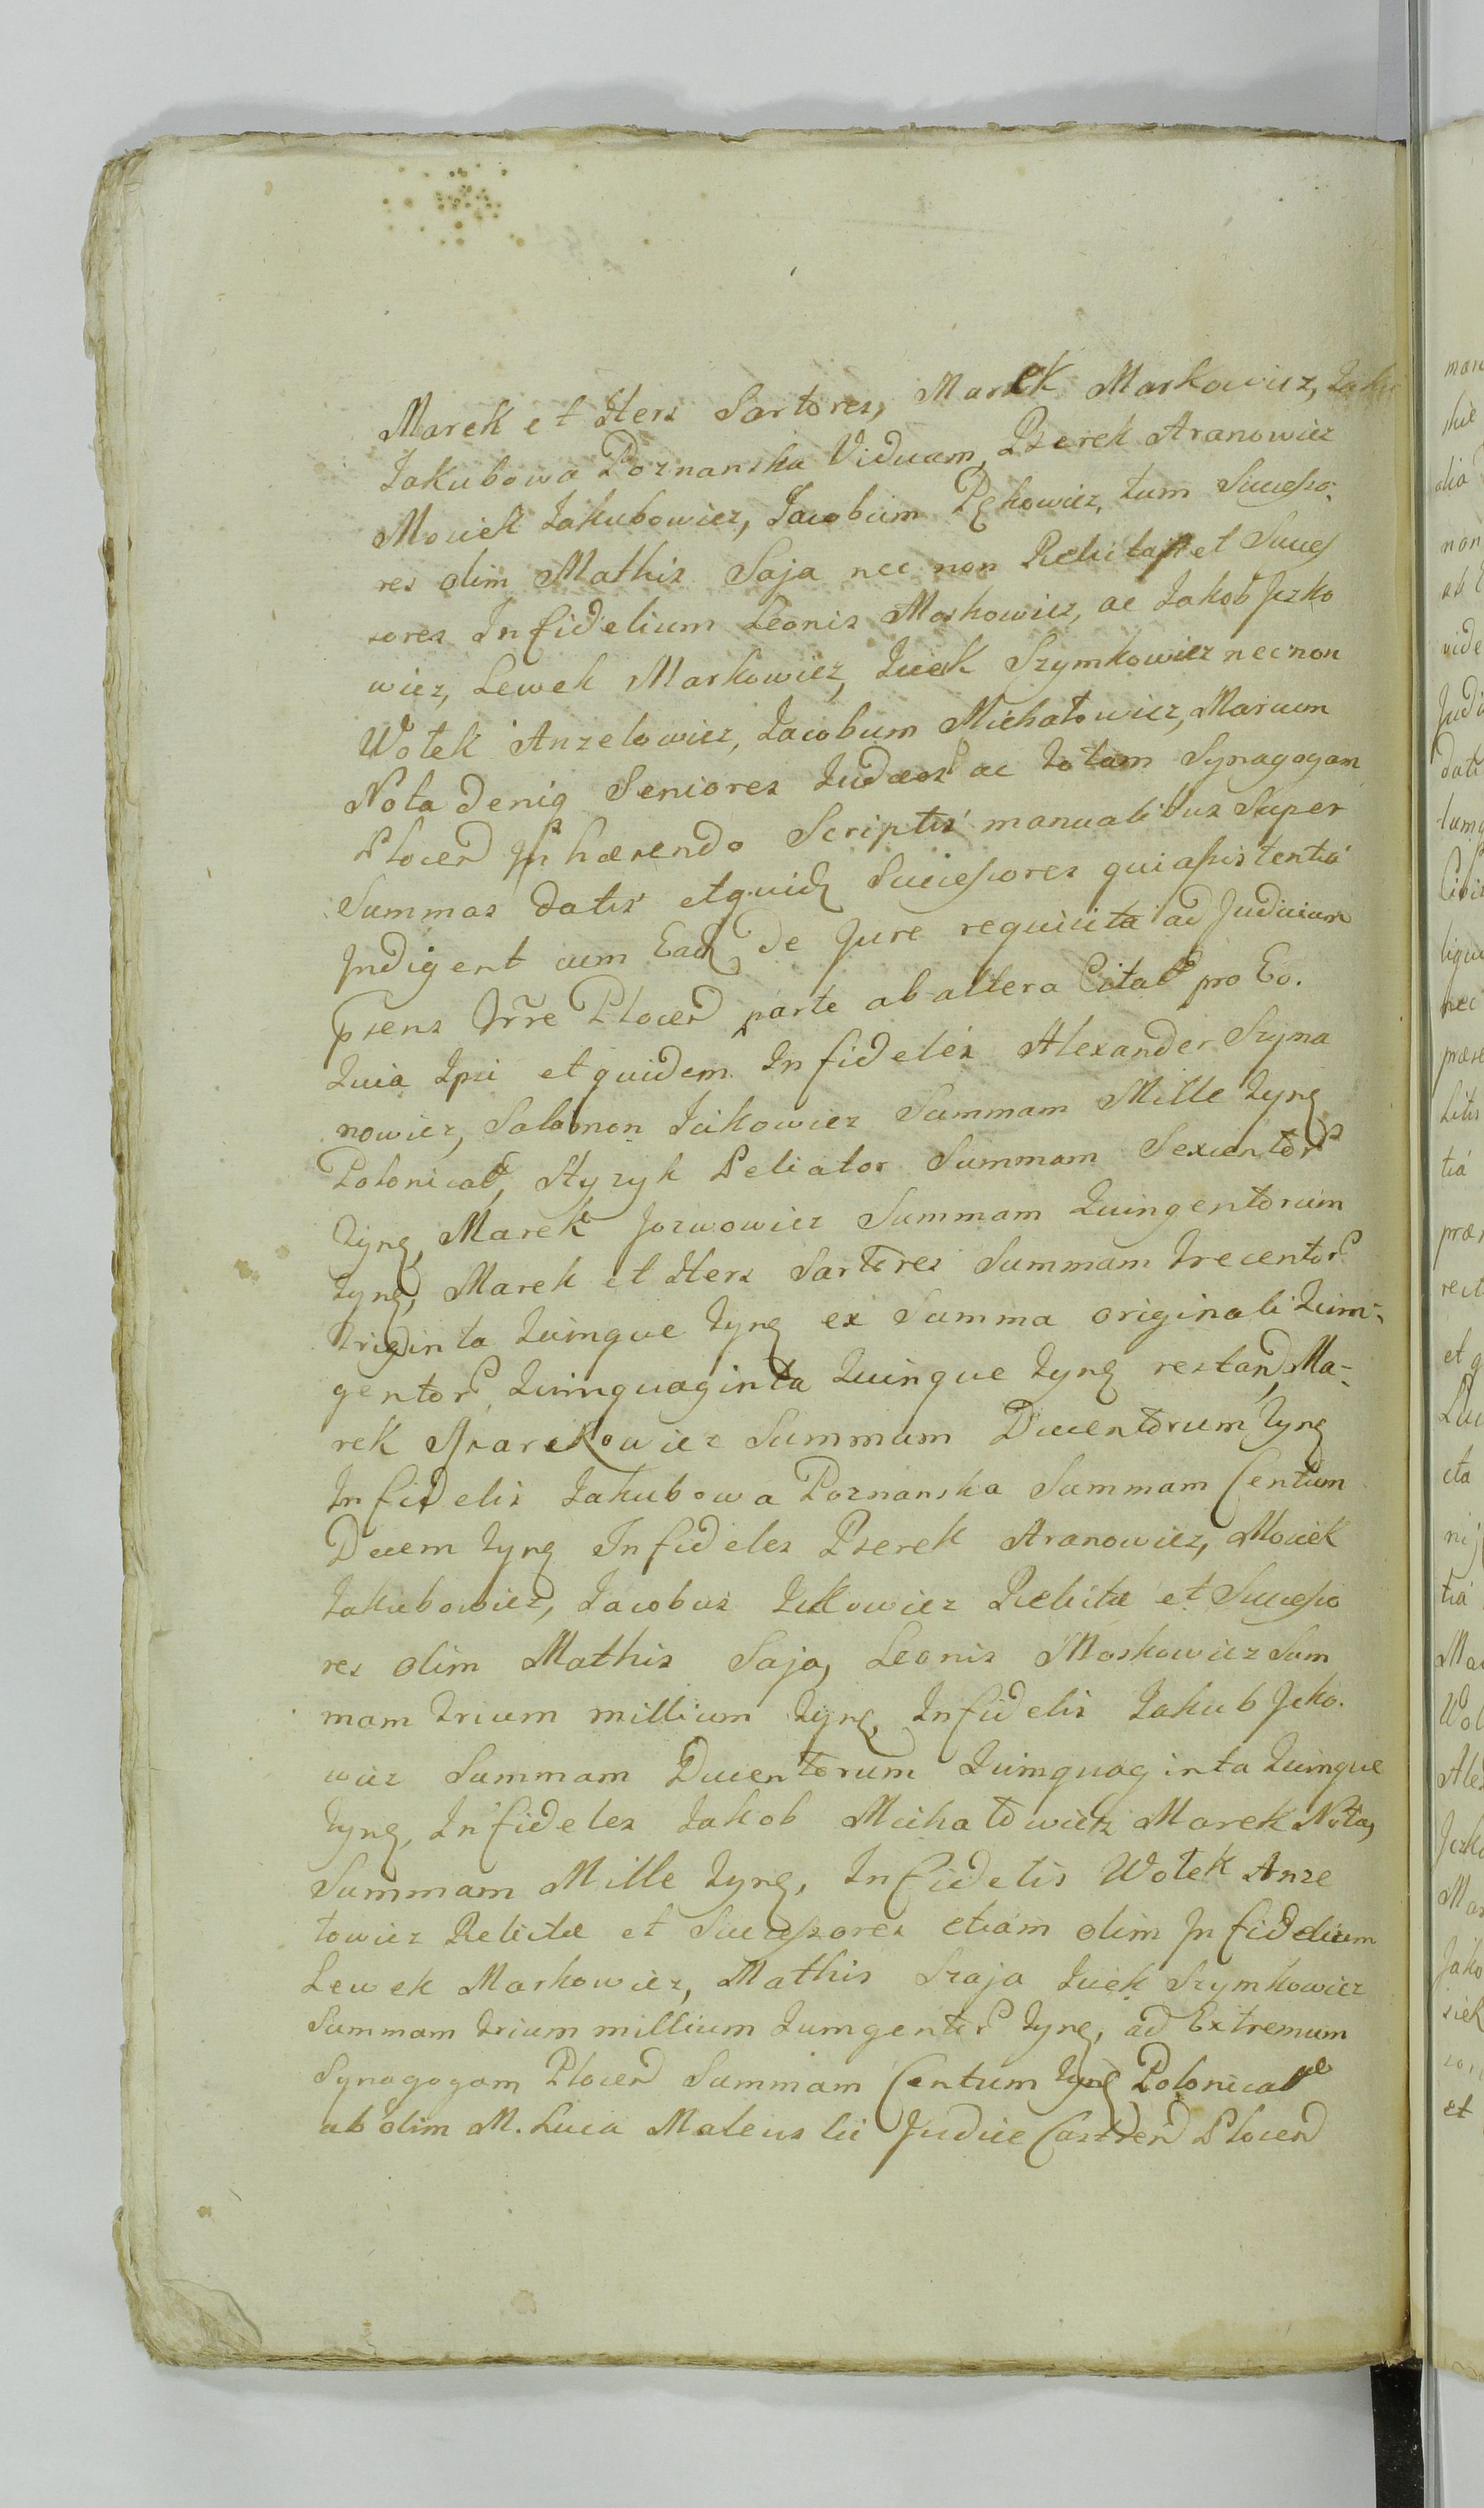 Marek et Hers Sartores, Marek Markowicz, Jaku
Jakubowa Poznanska Viduam, Pserek Aranowicz
Mosiek Jakubowicz, Jacobum tum Successo-
res olim Mathis Saja nec non Relictas et Succes
sores Infidelium Leonis Moskowicz, ac Jakob Jezko
wicz, Lewek Markowicz, Icek Szymkowicz necnon
Wolek Anzelowicz, Jacobum Michałowicz, Marcum
Nota deniq Seniores Judæos ac Totam Synagogam
Plocen Inhærendo Scriptis manualibus Super
Summas datis etquid Successores qui assistentiá
Indigent cum Ead de Jure requisita ad Judicium
psens Trre Plocen parte ab altera Citat pro Eo.
Quia Ipsi et quidem Infideles Alexander Szyma
nowicz, Salomon Jcikowicz Summam Mille tynf
Polonical, Hyzyk Peliator Summam Sexcentor
tynf, Marek Jozwowicz Summam Quingentorum
tynf, Marek et Hers Sartores Summam trecentor
triginta Quinque tynf ex Summa originali Quin-
gentor Quinquaginta Quinque tynf restan, Ma-
rek Markowicz Summam Ducentorum tynf
Infidelis Jakubowa Poznanska Summam Centum
Decem tynf Infideles Pserek Aranowicz, Mosiek
Jakubowicz, Jacobus Relictæ et Successo
res olim Mathis Saja, Leonis Moskowicz Sum
mam trium millium tynf, Infidelis Jakub Jcko.
wicz Summam Ducentorum Quinquaginta Quinque
tynf, Infideles Jakob Michałowicz Marek Nota,
Summam Mille tynf, Infidelis Wolek Anze
lowicz Relictæ et Successores etiám olim Infidelium
Lewek Markowicz, Mathis Szaja Icek Szymkowicz
Summam trium millium Quingentor tynf, ad Extremum
Synagogam Plocen Summam Centum tynf Polonical
ab olim M. Luca Mateuslii Judice Castren Plocen